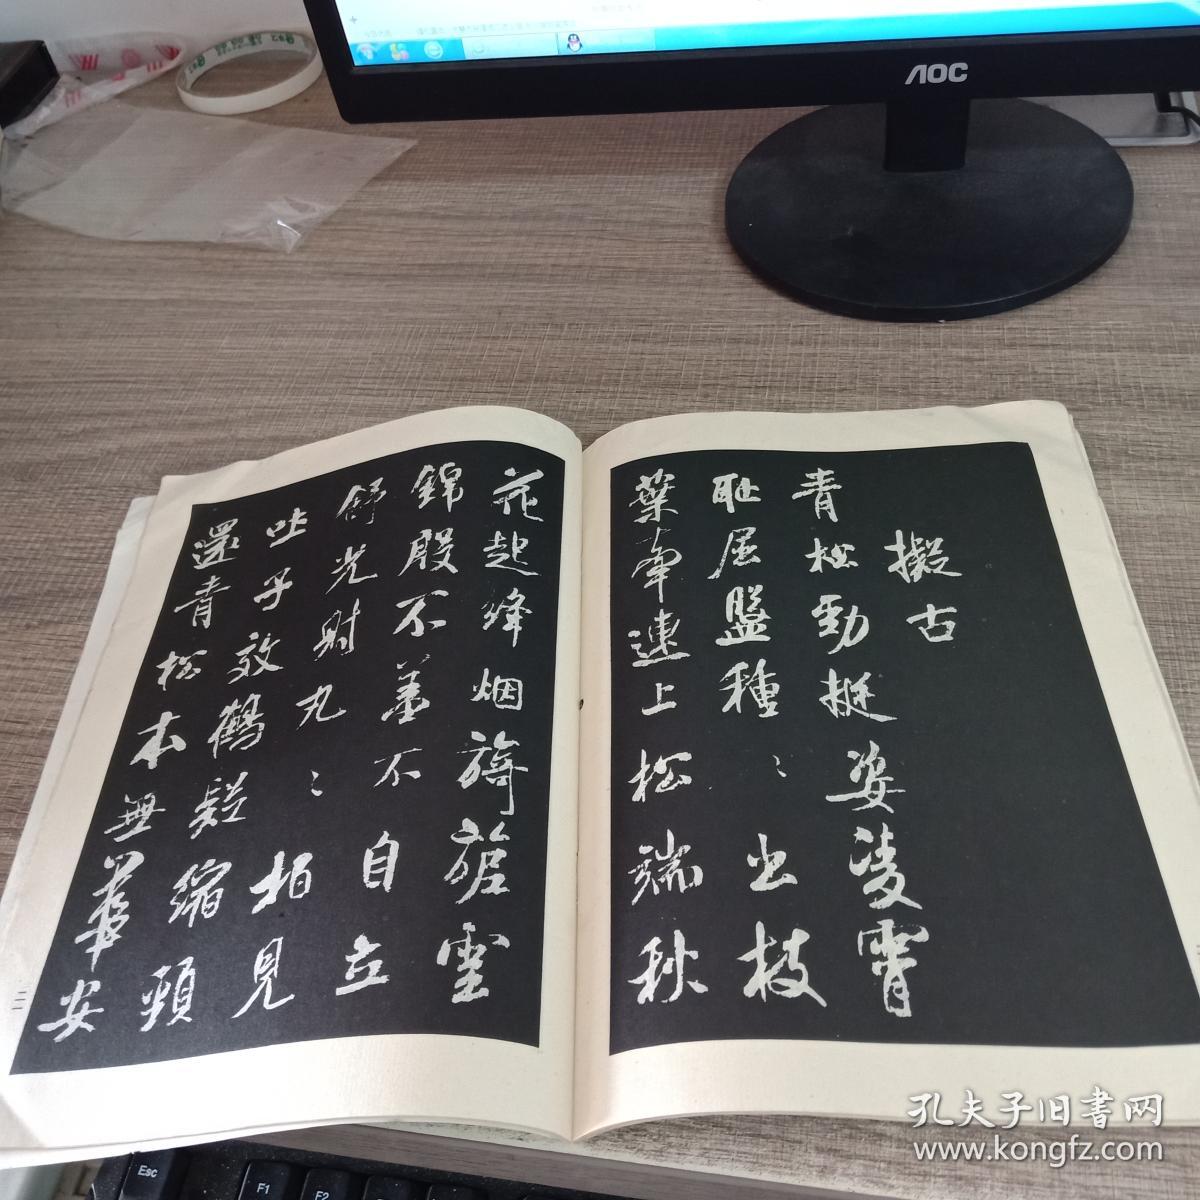 擬古
青松勁挺姿凌霄
耻屈盤種〻出枝
葉牽連上松端秋
花起絳烟旖旎雲
錦殷不羞不自立
舒光射丸〻柏見
吐子效鶴疑縮頸
還青松本無華安
二二
AOC
Esc
F1
F2
孔夫子旧書网
www.kongfz.com